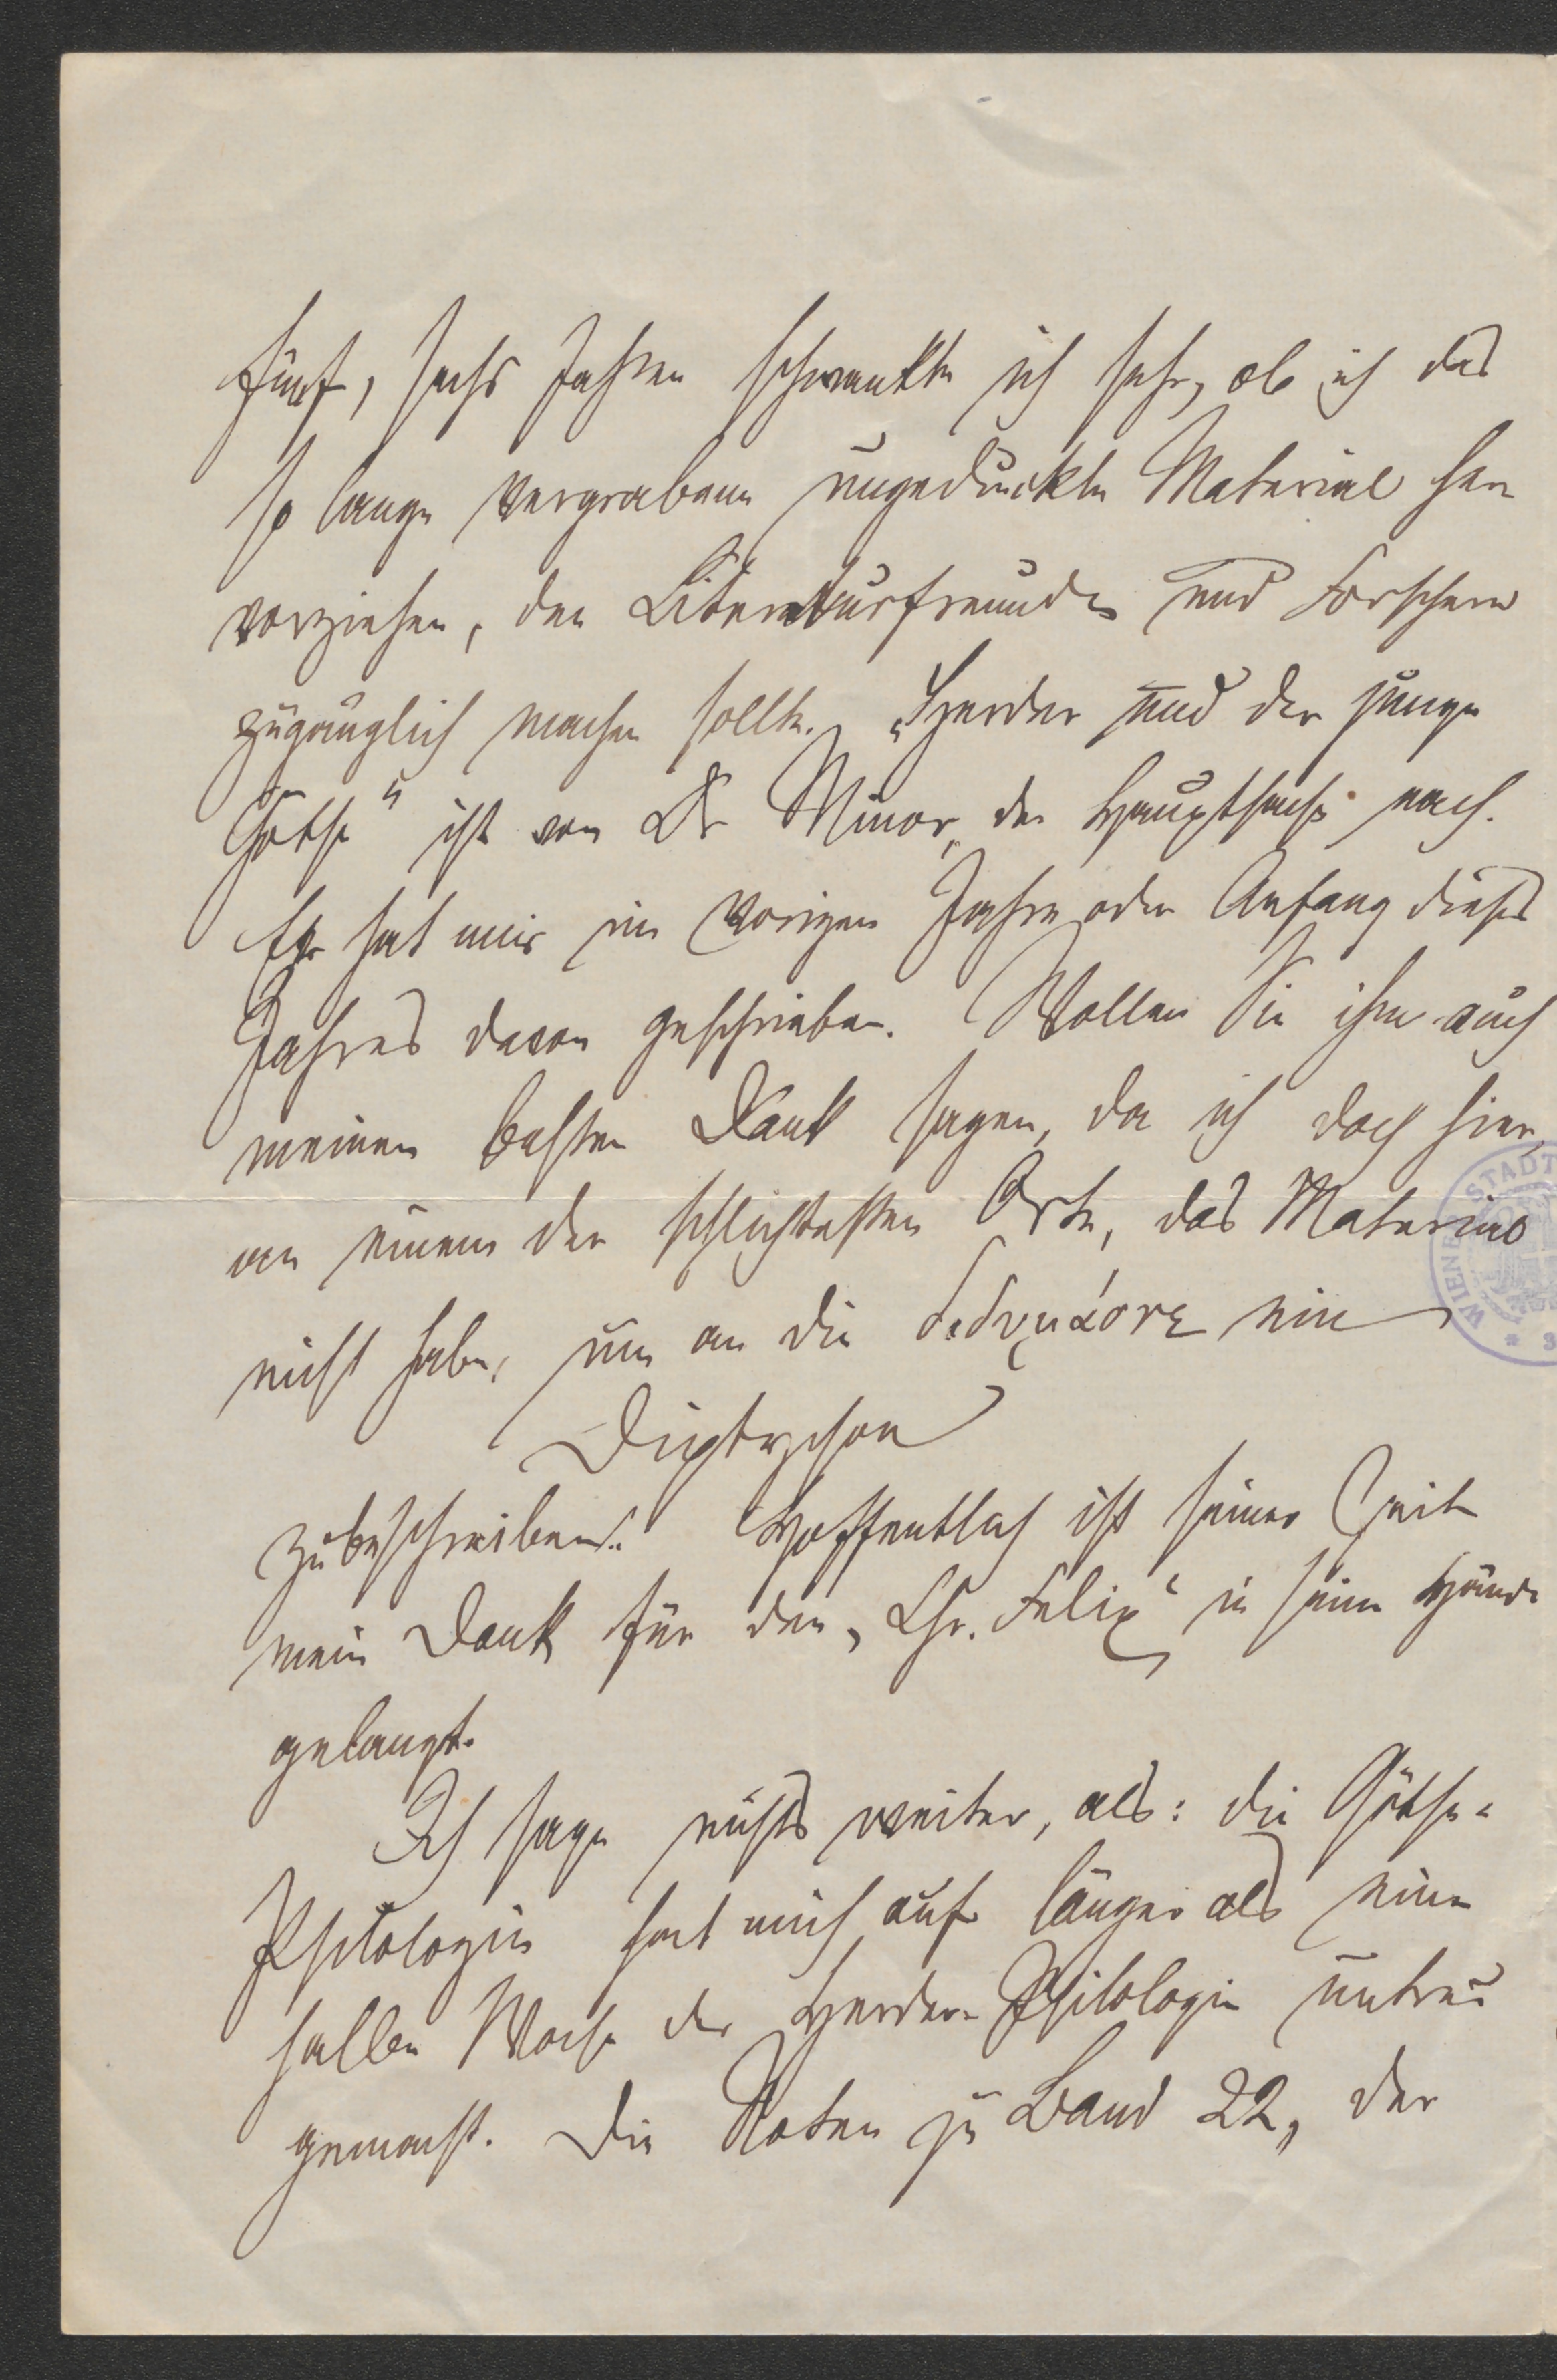 fünf, sechs Jahren schwankte ich sehr, ob ich das
so lange vergrabene ungedruckte Material her
vorziehen, den Literaturfreunden und Forschern
zugänglich machen sollte. „Herder und der junge
Göthe“ ist von Dr Minor, der Hauptsache nach.
Er hat mir im vorigen Jahre oder Anfang dieses
Jahres davon geschrieben. Wollen Sie ihm auch
meinen besten Dank sagen, da ich doch hier,
an einem der schlichtesten Orte, das Material
nicht habe, um an die ein
Diptychon
zu beschreiben. Hoffentlich ist seiner Zeit
mein Dank für den „Chr. Felix“ in seine Hände
gelangt.
Ich sage nichts weiter, als: die Göthe-
Philologie hat mich auf länger als eine
halbe Woche der Herder-Philologie untreu
gemacht. Die Noten zu Band 22, der
WIENER STADT